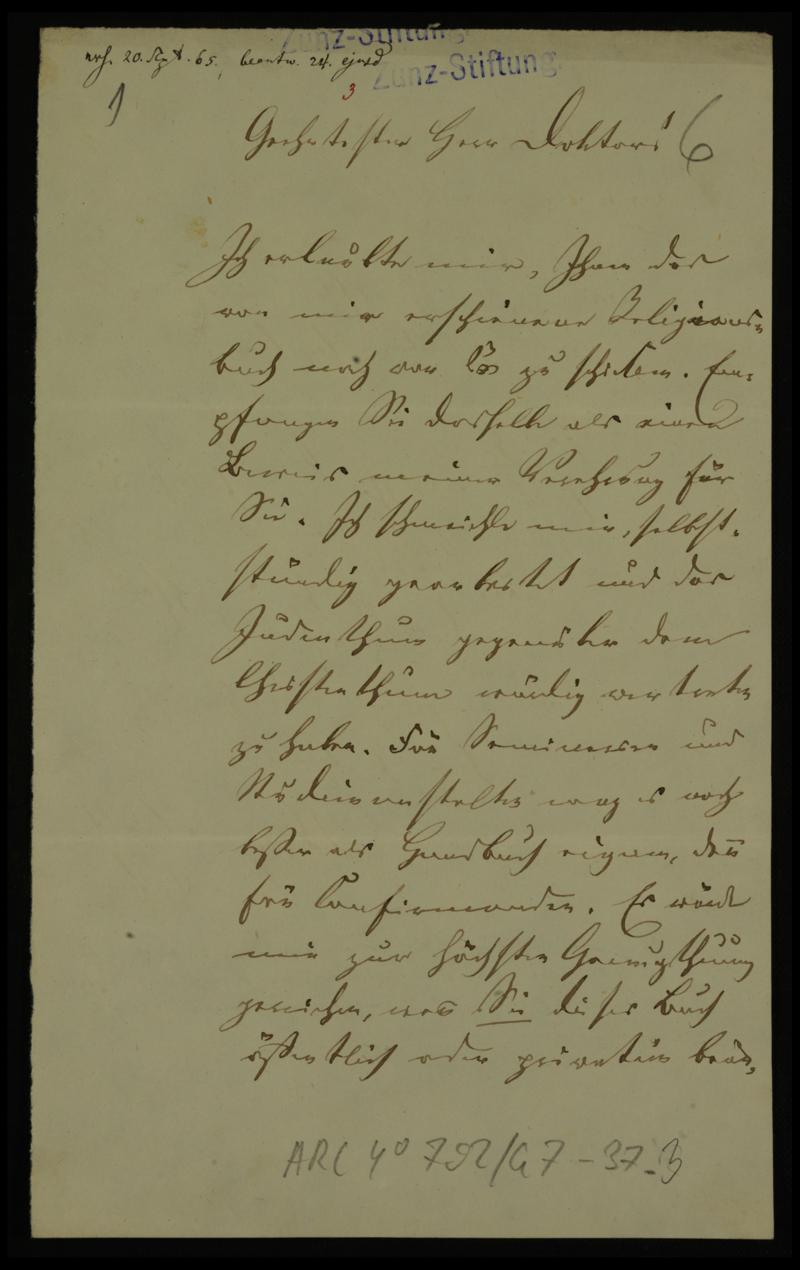 Zunz-Stiftung
Zunz-Stiftung
erh. 20. Sept. 65, beantw. 24. ejusd
3
1
Geehrtester Herr Doktor! 6
Ich erlaubte mir, Ihnen das
von mir erschienene Religions-
buch noch vor zu schicken. Em-
pfangen Sie dasselbe als einen
Beweis meiner Verehrung für
Sie. Ich schmeichle mir, selbst-
ständig gearbeitet und das
Judenthum gegenüber dem
Christenthum würdig vertreten
zu haben. Für Seminarien und
Studienanstalten mag es noch
besser als Handbuch eignen, den
für Confirmanden. Es würde
mir zur höchsten Genugthuung
gereichen, wen Sie dieses Buch
öffentlich oder privatim beur-
ARC 4° 792/G7-37.3